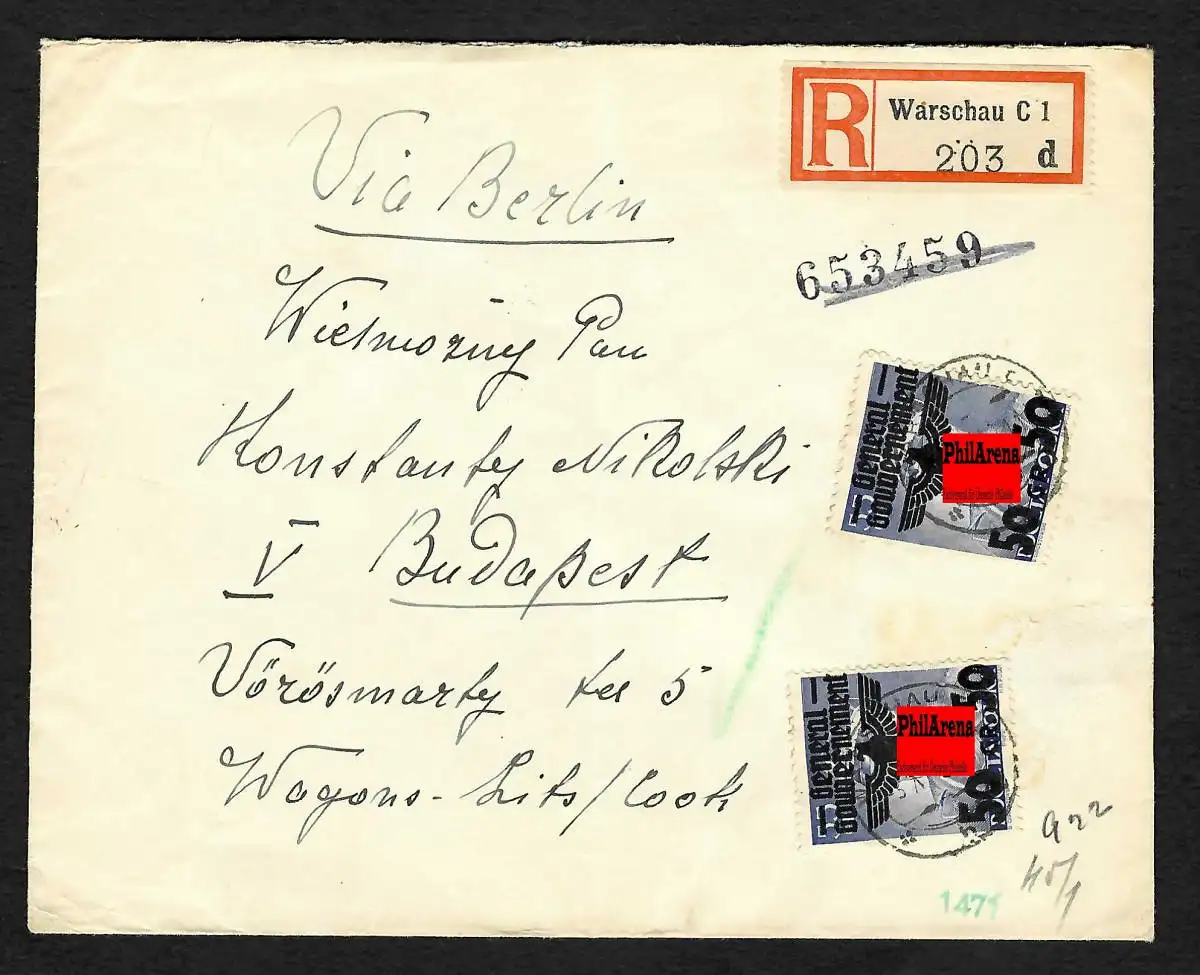 R Warschau C 1
203 d
Via Berlin
653459
Wielmozny Pan
Konstanty Nikolski
V Budapest
Vörösmarty ter 5
Wagons-Lits/Cook
General
Gouvernement
50 50
PhilArena
General
Gouvernement
50 50
PhilArena
1471